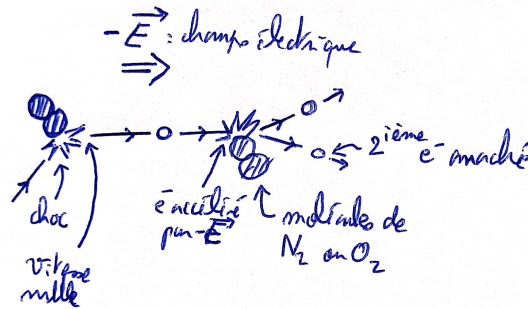 -E : champ électrique
2ième e- arraché
choc
vitesse
nulle
e- accéléré
par -E
molécules de
N2 ou O2